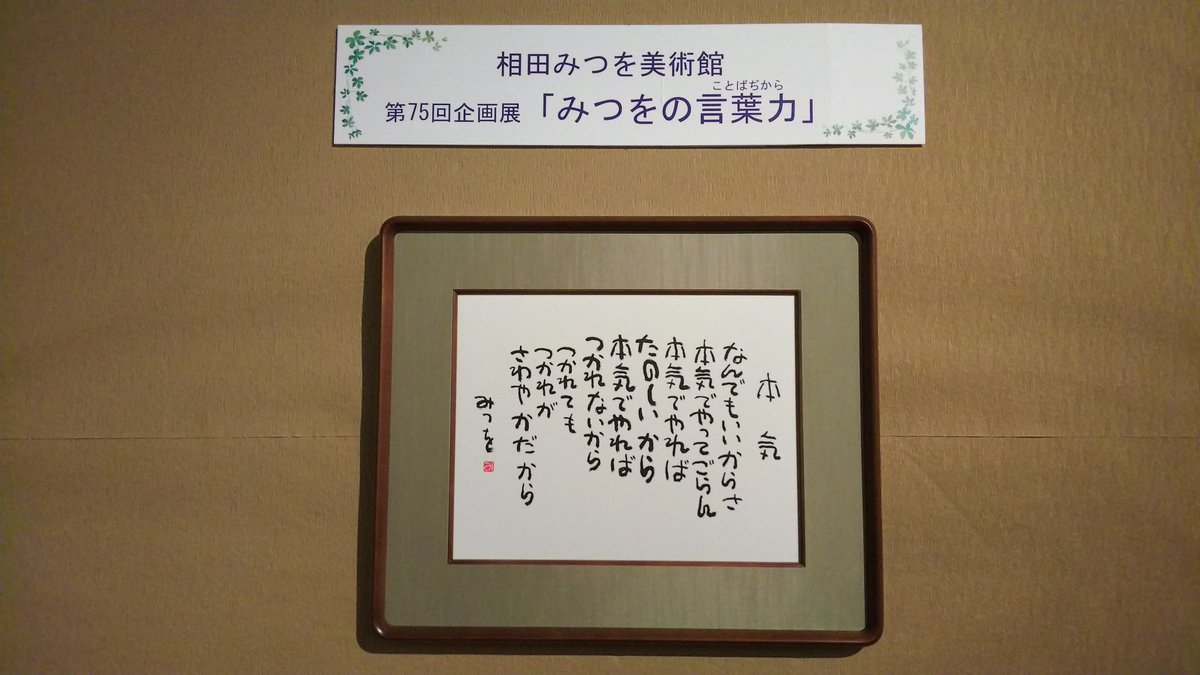 相田みつを美術館
第75回企画展「みつをの言葉力」
ことばぢから
本気
なんでもいいからさ
本気でやってごらん
本気でやれば
たのしいから
本気でやれば
つかれないから
つかれても
つかれが
さわやかだから
みつを